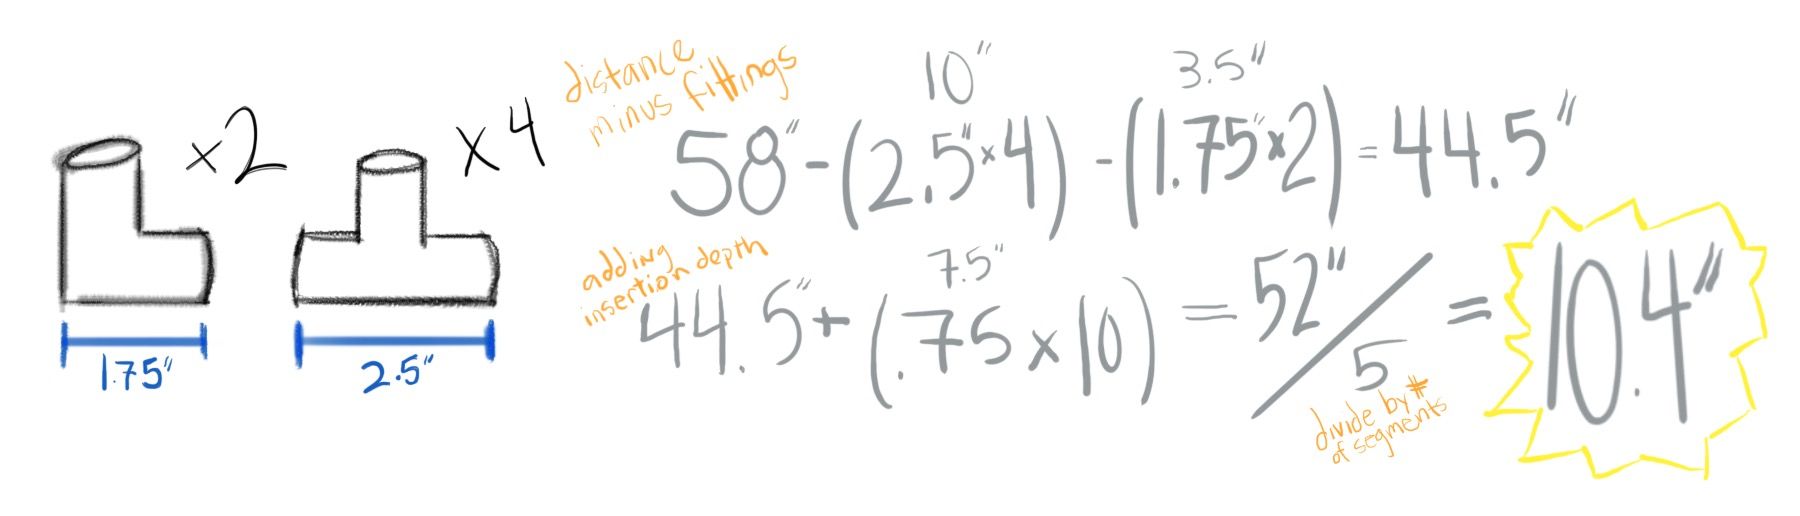 ×2
×4
1.75"
2.5"
distance
minus fittings
10"
3.5"
58" - (2.5" × 4) - (1.75" × 2) = 44.5"
adding
insertion depth
7.5"
44.5" + (.75 × 10) = 52" / 5 = 10.4"
divide by #
of segments